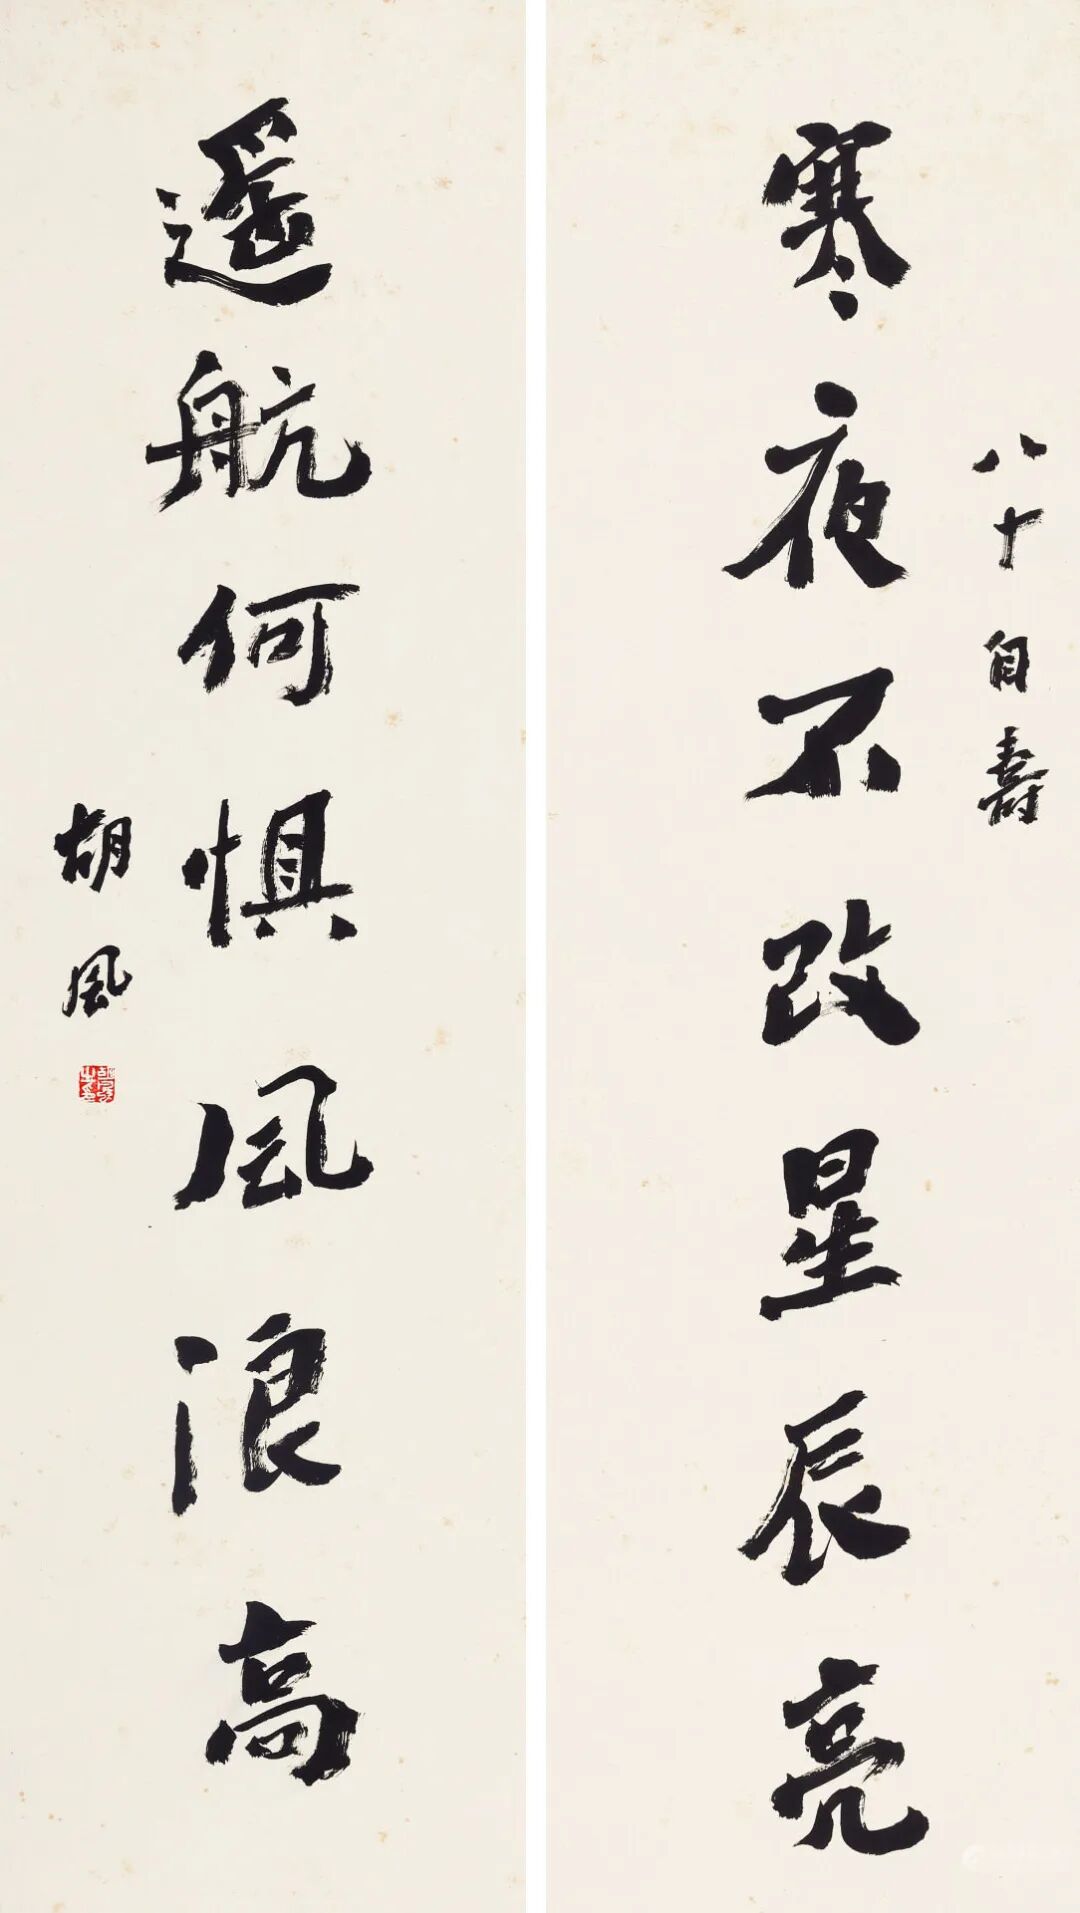 八十自壽
寒夜不改星辰亮
遥航何惧风浪高
胡风